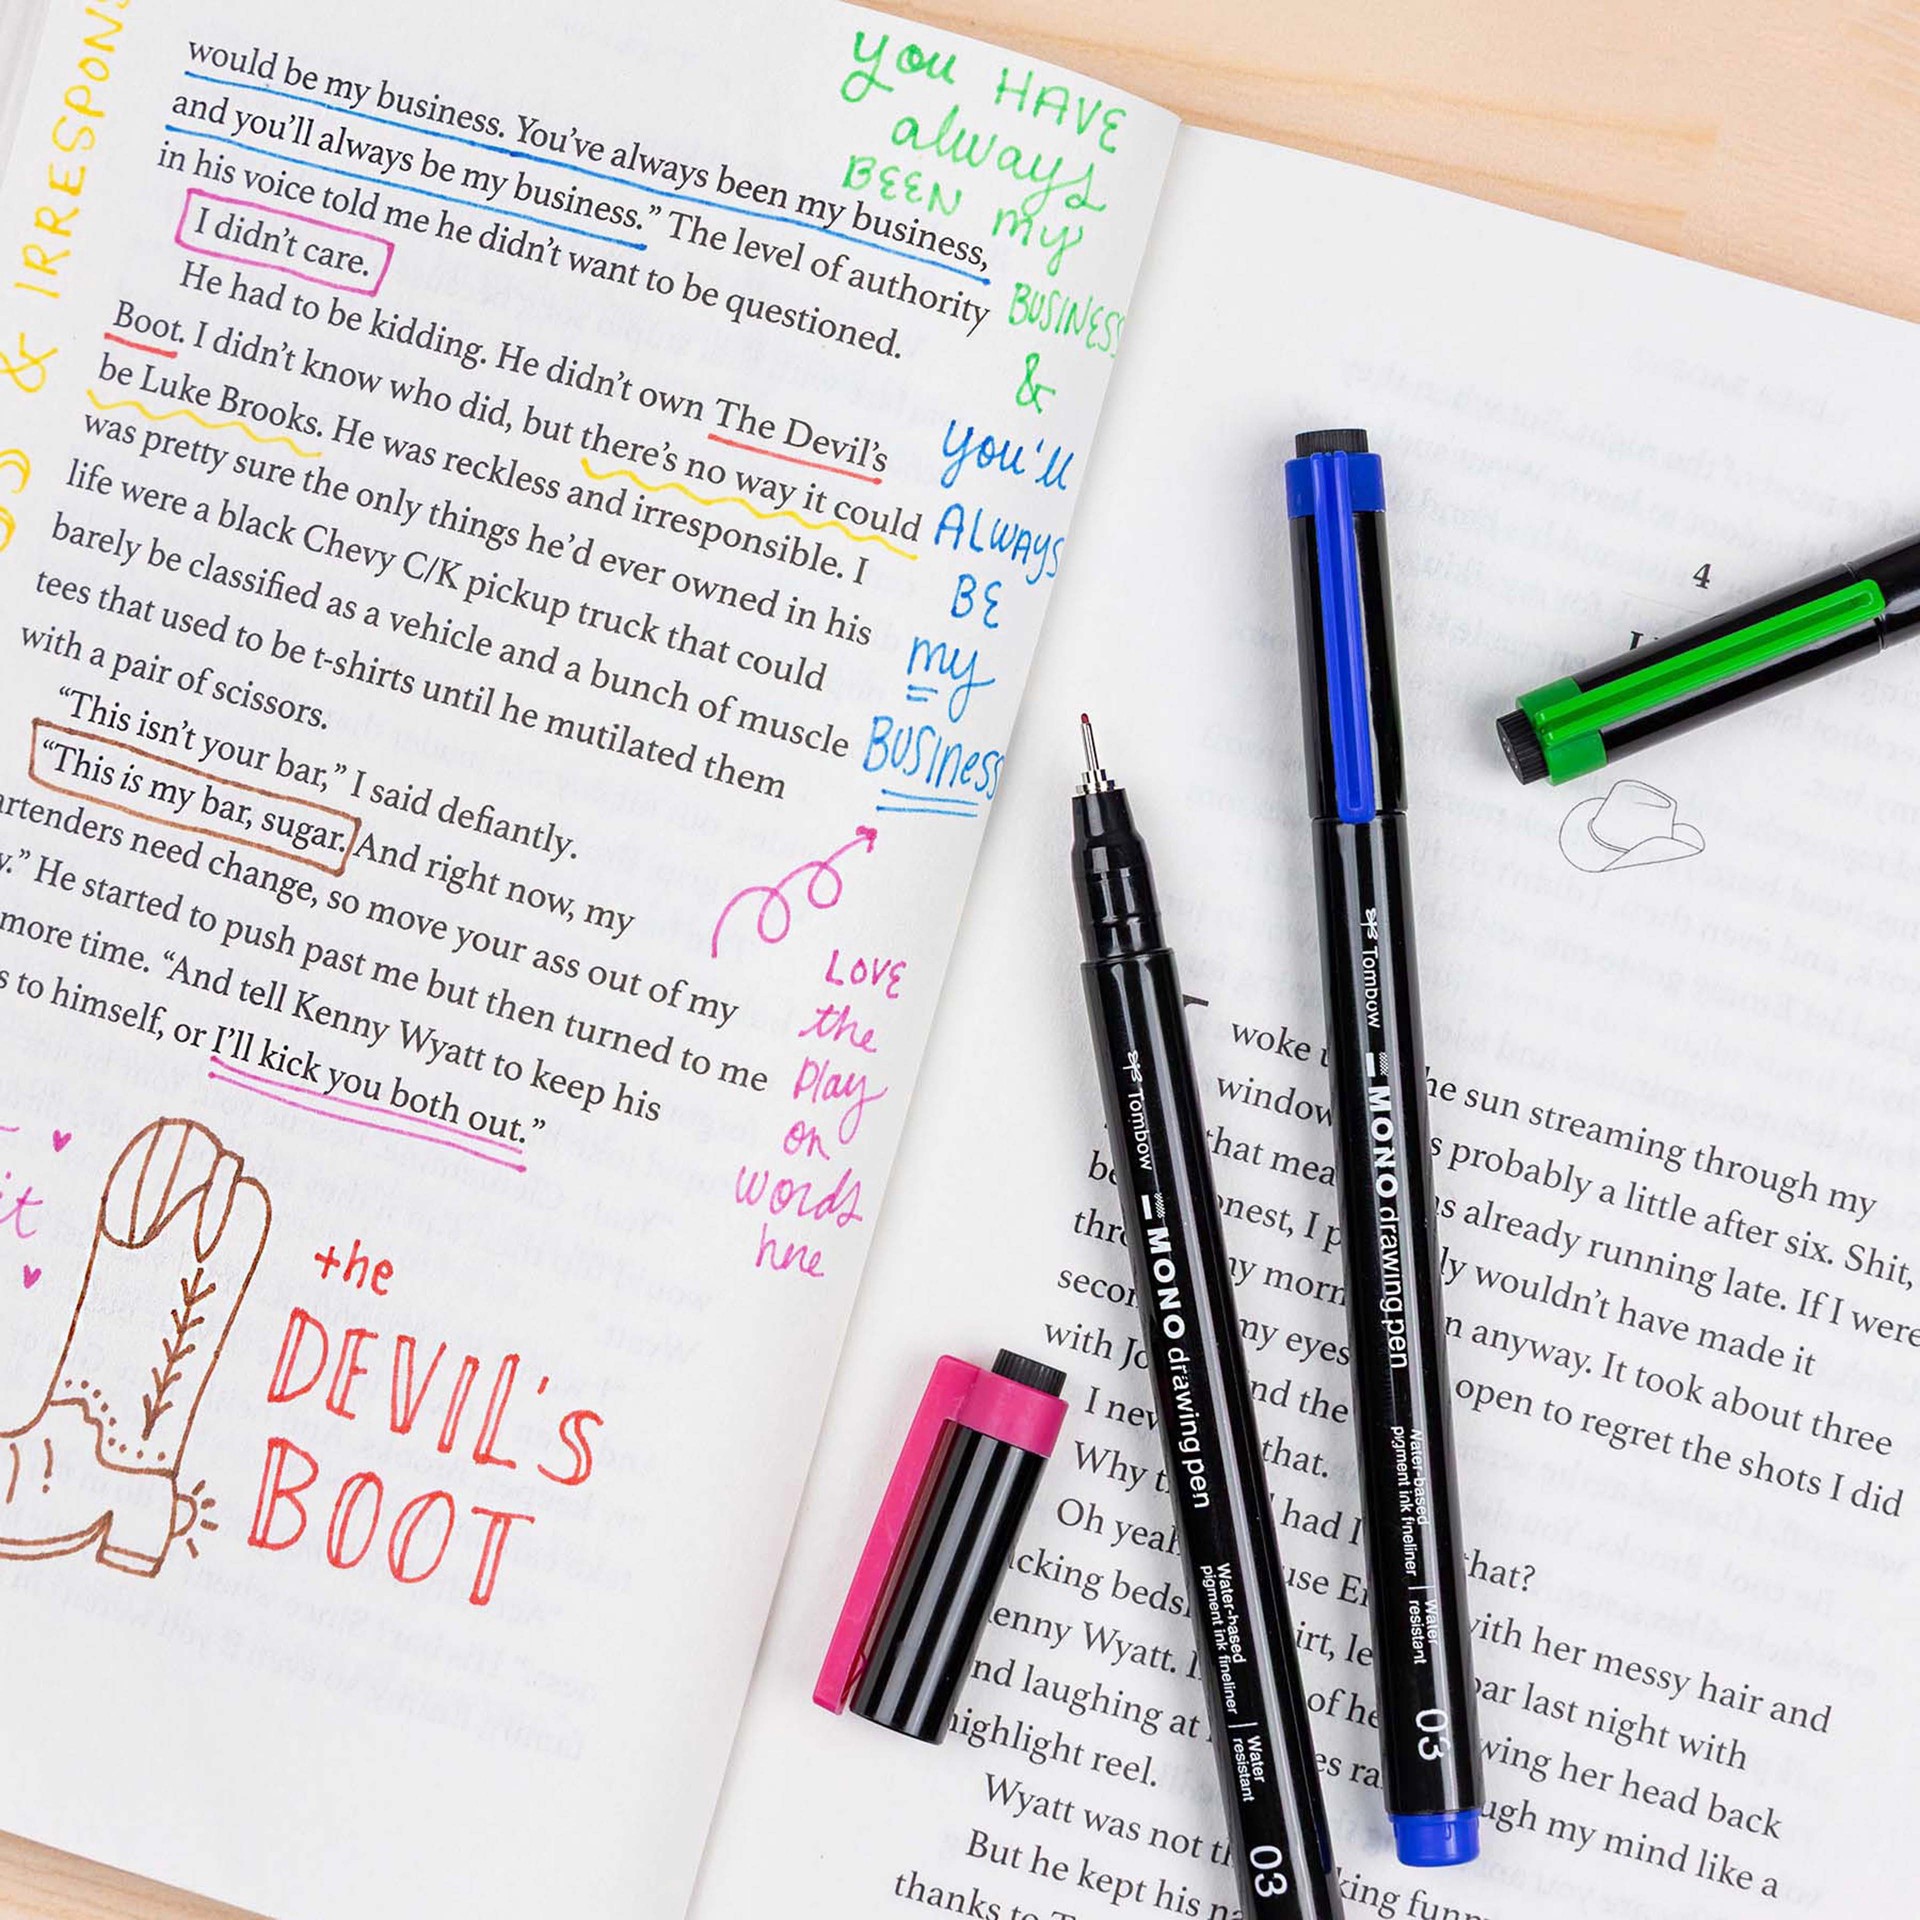 & IRRESPONS
would be my business. You've always been my business,
and you'll always be my business.” The level of authority
in his voice told me he didn't want to be questioned.
I didn't care.
He had to be kidding. He didn't own The Devil's
Boot. I didn't know who did, but there's no way it could
be Luke Brooks. He was reckless and irresponsible. I
was pretty sure the only things he'd ever owned in his
life were a black Chevy C/K pickup truck that could
barely be classified as a vehicle and a bunch of muscle
tees that used to be t-shirts until he mutilated them
with a pair of scissors.
“This isn't your bar,” I said defiantly.
“This is my bar, sugar. And right now, my
artenders need change, so move your ass out of my
y.” He started to push past me but then turned to me
more time. “And tell Kenny Wyatt to keep his
s to himself, or I'll kick you both out.”
you HAVE
always
BEEN my
BUSINESS
&
you'll
ALWAYS
BE
my
BUSINESS
LOVE
the
Play
on
words
here
it
the
DEVIL'S
BOOT
4
woke u he sun streaming through my
window s probably a little after six. Shit,
that mea as already running late. If I were
be onest, I p ly wouldn't have made it
thro my morn n anyway. It took about three
secon my eyes open to regret the shots I did
with Jo nd the
I nev that.
Why t had I that?
Oh yeah use E with her messy hair and
cking beds irt, le bar last night with
enny Wyatt. I of he wing her head back
nd laughing at es ra ugh my mind like a
highlight reel.
Wyatt was not th
But he kept his na king funn
thanks to
Tombow MONO drawing pen Water-based pigment ink fineliner | Water resistant 03
Tombow MONO drawing pen Water-based pigment ink fineliner | Water resistant 03